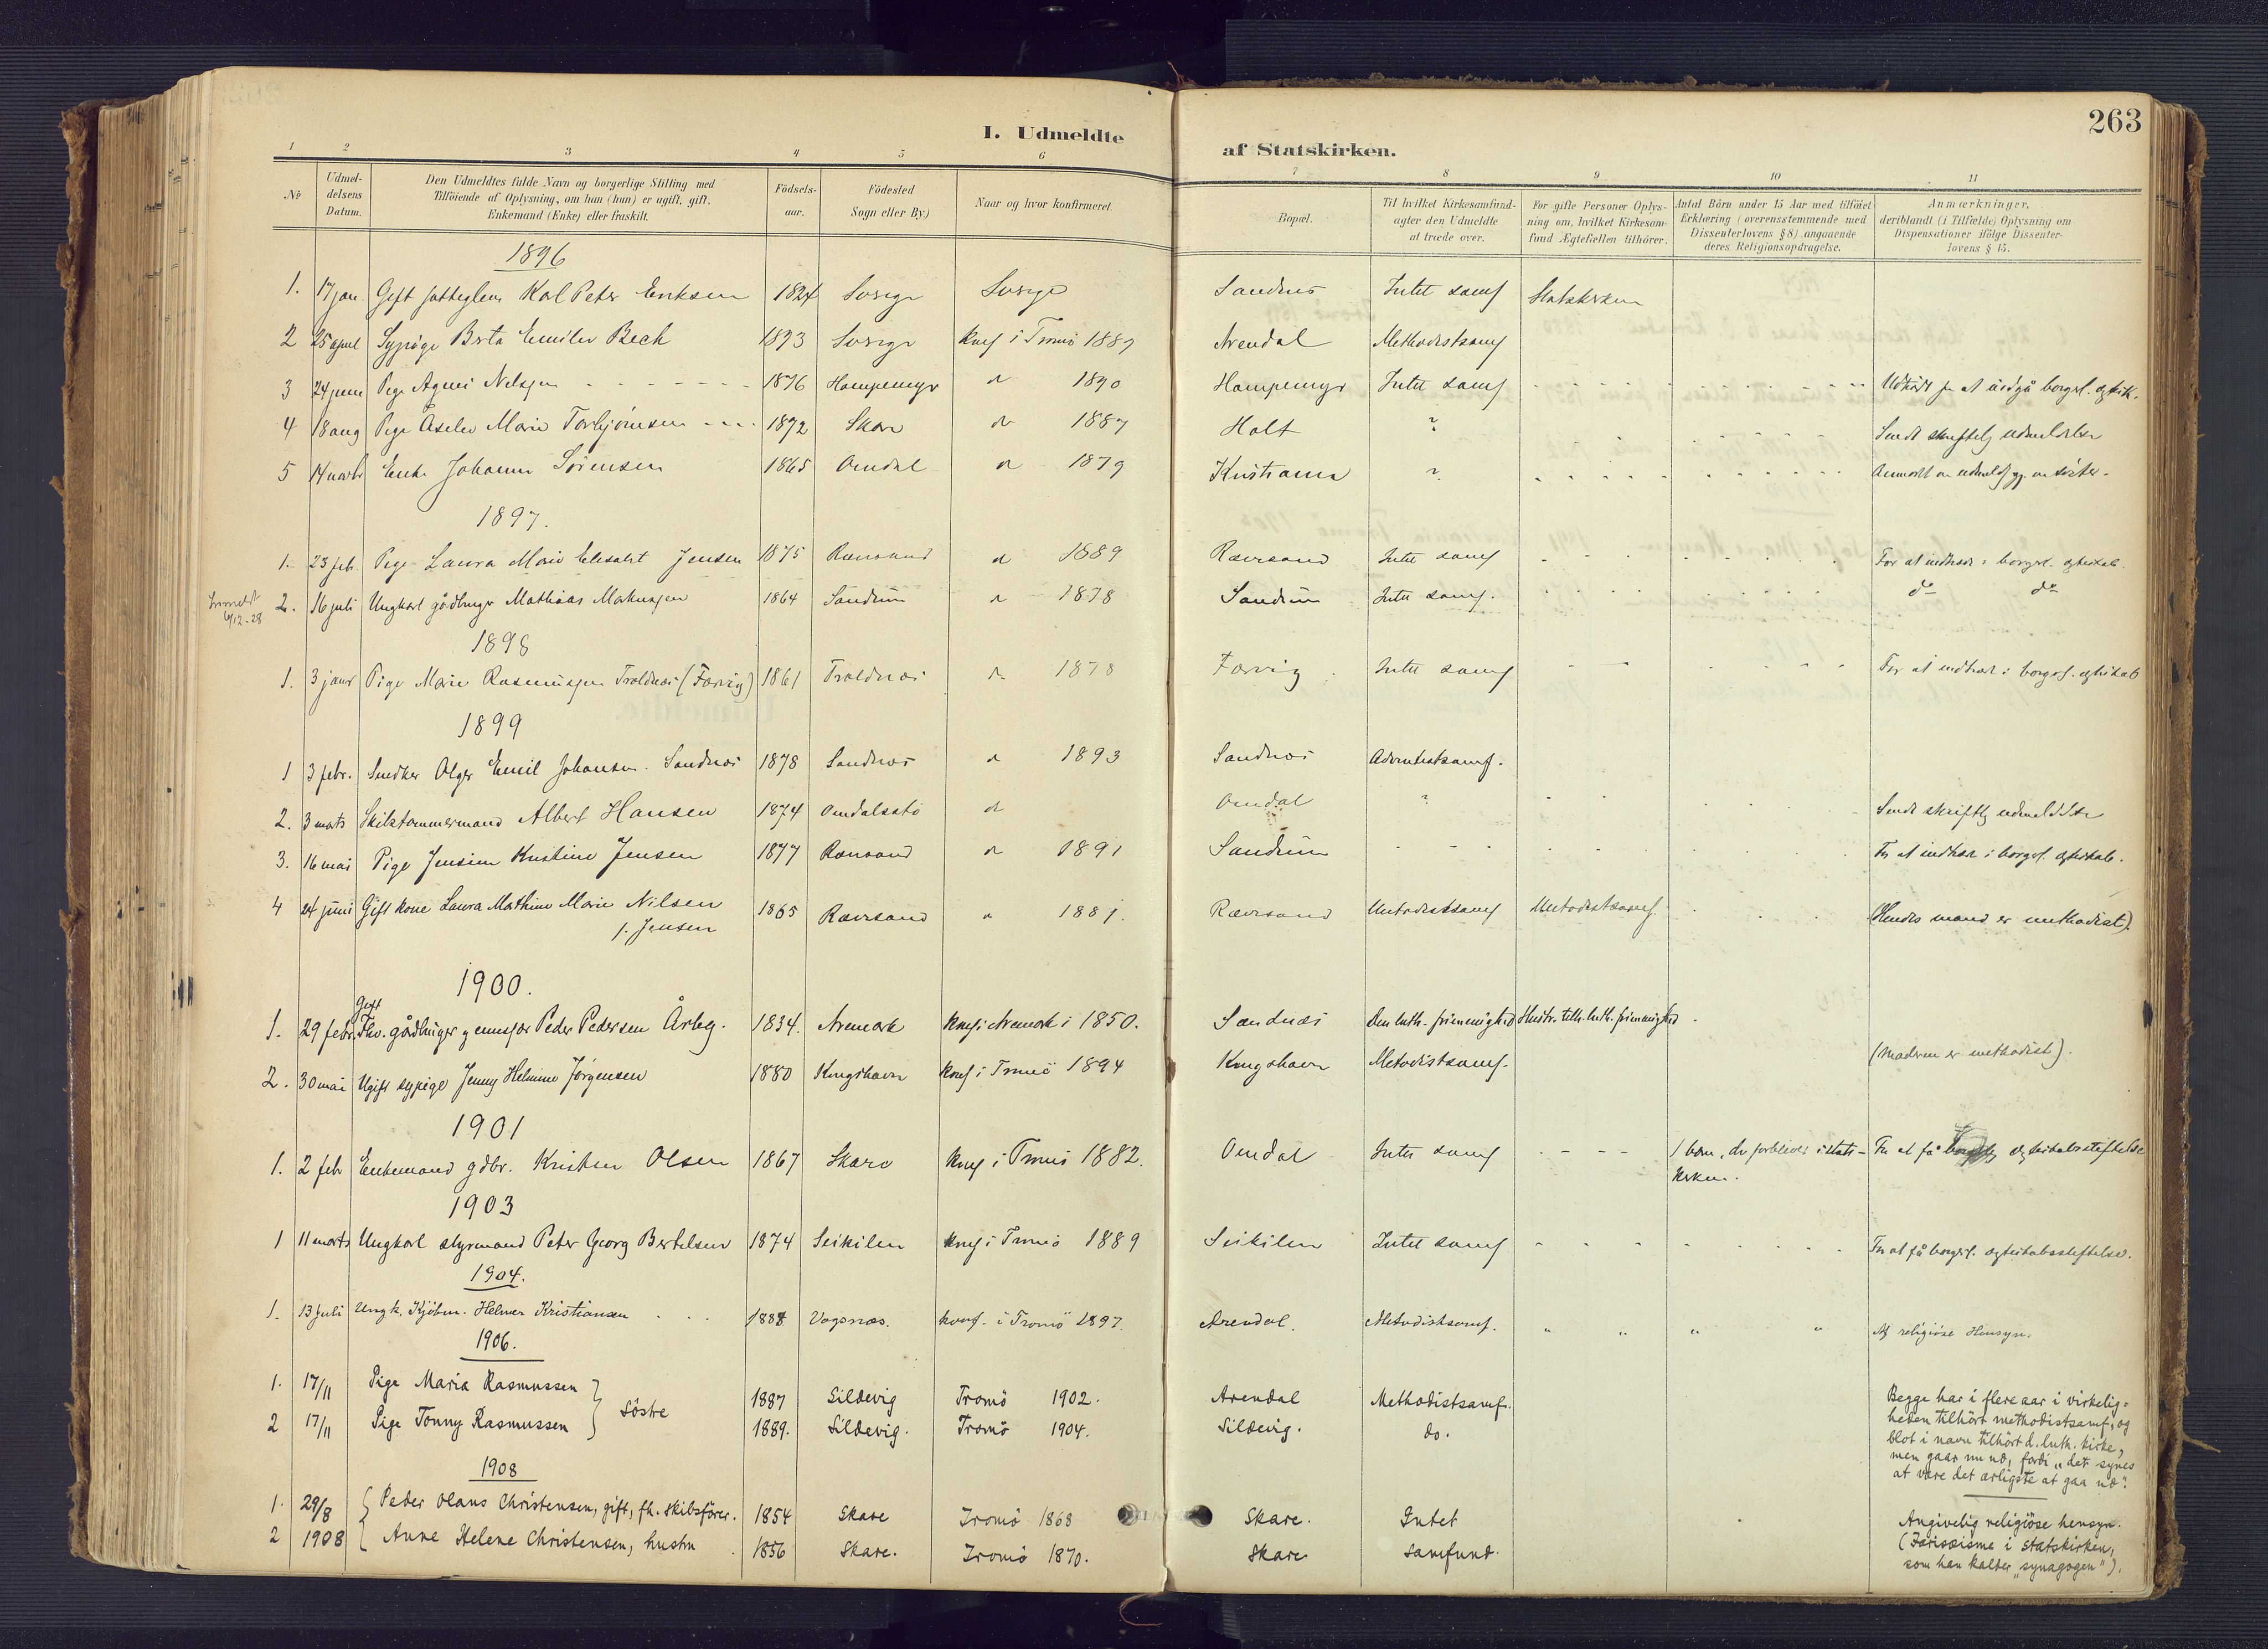 263
I. Udmeldte af Statskirken.
1 2 3 4 5 6 7 8 9 10 11
No
Udmeldelsens Datum.
Den Udmeldtes fulde Navn og borgerlige Stilling med Tilföiende af Oplysning, om han (hun) er ugift, gift, Enkemand (Enke) eller fraskilt.
Födselsaar.
Födested Sogn eller By.)
Naar og hvor konfirmeret.
Bopæl.
Til hvilket Kirkesamfund agter den Udmeldte at træde over.
For gifte Personer Oplysning om, hvilket Kirkesamfund Ægtefællen tilhörer.
Antal Börn under 15 Aar med tilföiet Erklæring (overensstemmende med Dissenterlovens § 8) angaaende deres Religionsopdragelse.
Anmærkninger, deriblandt (i Tilfælde) Oplysning om Dispensationer ifölge Dissenterlovens § 15.
1896
1. 17 jan. Gift Karl Peter Eriksen 1824 Sverige Sverige Sandnes Intet samf Statskirken
2 25 april Sypige Berta Emilie Bech 1873 Sverige Konf i Tromö 1887 Arendal Methodistsamf
3 24 juni Pige Agnes Nilsen 1876 Hampemyr do 1890 Hampemyr Intet samf
4 18 aug Pige Åselie Marie Torbjörnsen 1872 Skare do 1887 Holt ? Sendt skriftlig udmeldelse
5 14 novbr Enke Johanne Sörensen 1865 Omdal do 1879 Kristiania ?
1897.
1. 23 feb Pige Laura Marie Elisabet Jensen 1875 Rævesand do 1889 Rævesand Intet samf For at indtræde i borgerl. ægteskab.
6/12-28
2. 16 juli Ungkarl gårdbruger Mathias Mathisen 1864 Sandum do 1878 Sandum Intet samf. do do
1898
1. 3 janr Pige Marie Rasmussen Troldnes (Færvig) 1861 Troldnes do 1878 Færvig Intet samf For at indtræde i borgerl. ægteskab
1899
1 3 febr. Snedker Olger Emil Johansen. Sandnes 1878 Sandnes do 1893 Sandnes Adventistsamf.
2. 3 marts Skibstømmermand Albert Hansen 1874 Omdalsstö do Omdal ? Sendt skriftlig udmeldelse
3. 16 mai Pige Jensine Kristine Jensen 1877 Rævesand do 1891 Sandum For at indtræde i borgerl. ægteskab.
4 24 juni Gift kone Laura Mathine Marie Nilsen 1865 Rævesand do 1881. Rævesand Metodistsamf Metodistsamf. (Hendes mand er methodist).
f. Jensen
1900.
Gift
1. 29 febr. Fhv. gårdbruger Peder Pedersen Årbey. 1834. Aremark Konf i Aremark i 1850. Sandnes Den luth. frimenighed Hustr. tilh. luth. frimenighed
2. 30 mai Ugift sypige Jenny Helmine Jørgensen 1880 Kongshavn konf i Tromö 1894 Kongshavn Metodistsamf. (Moderen er methodist).
1901
1. 2 feb Enkemand gdbr. Kristen Olsen 1867 Skare konf i Tromö 1882. Omdal Intet samf 1 barn, der forbliver i statskirken. For at få borgerlig ægteskabsstiftelse
1903
1 11 marts Ungkarl styrmand Peter Georg Bertelsen 1874 Seikilen konf i Tromö 1889 Seikilen Intet samf For at få borgerl. ægteskabsstiftelse.
1904.
1. 13 juli Ungk. Kjöbm. Helmer Kristiansen 1888 Vogsnæs. konf. i Tromö 1897. Arendal. Metodistsamf. " " " " Af religiöse Hensyn.
1906.
1. 17/11 Pige Maria Rasmussen } Söstre 1887 Sildevig Tromö 1902. Arendal Methodistsamf.
2 17/11 Pige Tonny Rasmussen 1889. Sildevig. Tromö 1904. Sildevig. do.
Begge har i flere aar i virkelig=
heden tilhört methodistsamf, og
blot i navn tilhört d. luth. kirke,
men gaar nu ud, fordi "det synes
at være det ærligste at gaa ud".
1908
1. 29/8 Peder Olaus Christensen, gift, fh. skibsförer. 1854 Skare Tromö 1868 Skare. Intet
2 1908 Anne Helene Christensen, hustru 1856 Skare. Tromö 1870. Skare samfund.
Angivelig religiöse hensyn.
(Farisæisme i statskirken,
som han kalder "synagogen").